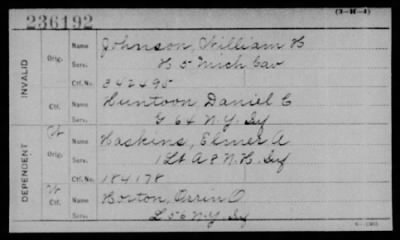 236192
(3-H-4)
INVALID
Orig. Name Johnson, William H
Serv. H 5 Mich Cav
Ctf. No. 342495
Ctf. Name Huntoon, Daniel C
Serv. G 64 N.Y. Inf
DEPENDENT
W
Orig. Name Haskins, Elmer A
Serv. 1 Lt A 8 N.H. Inf
Ctf. No. 184178
W
Ctf. Name Horton, Orrin O
Serv. L 56 N.Y. Inf